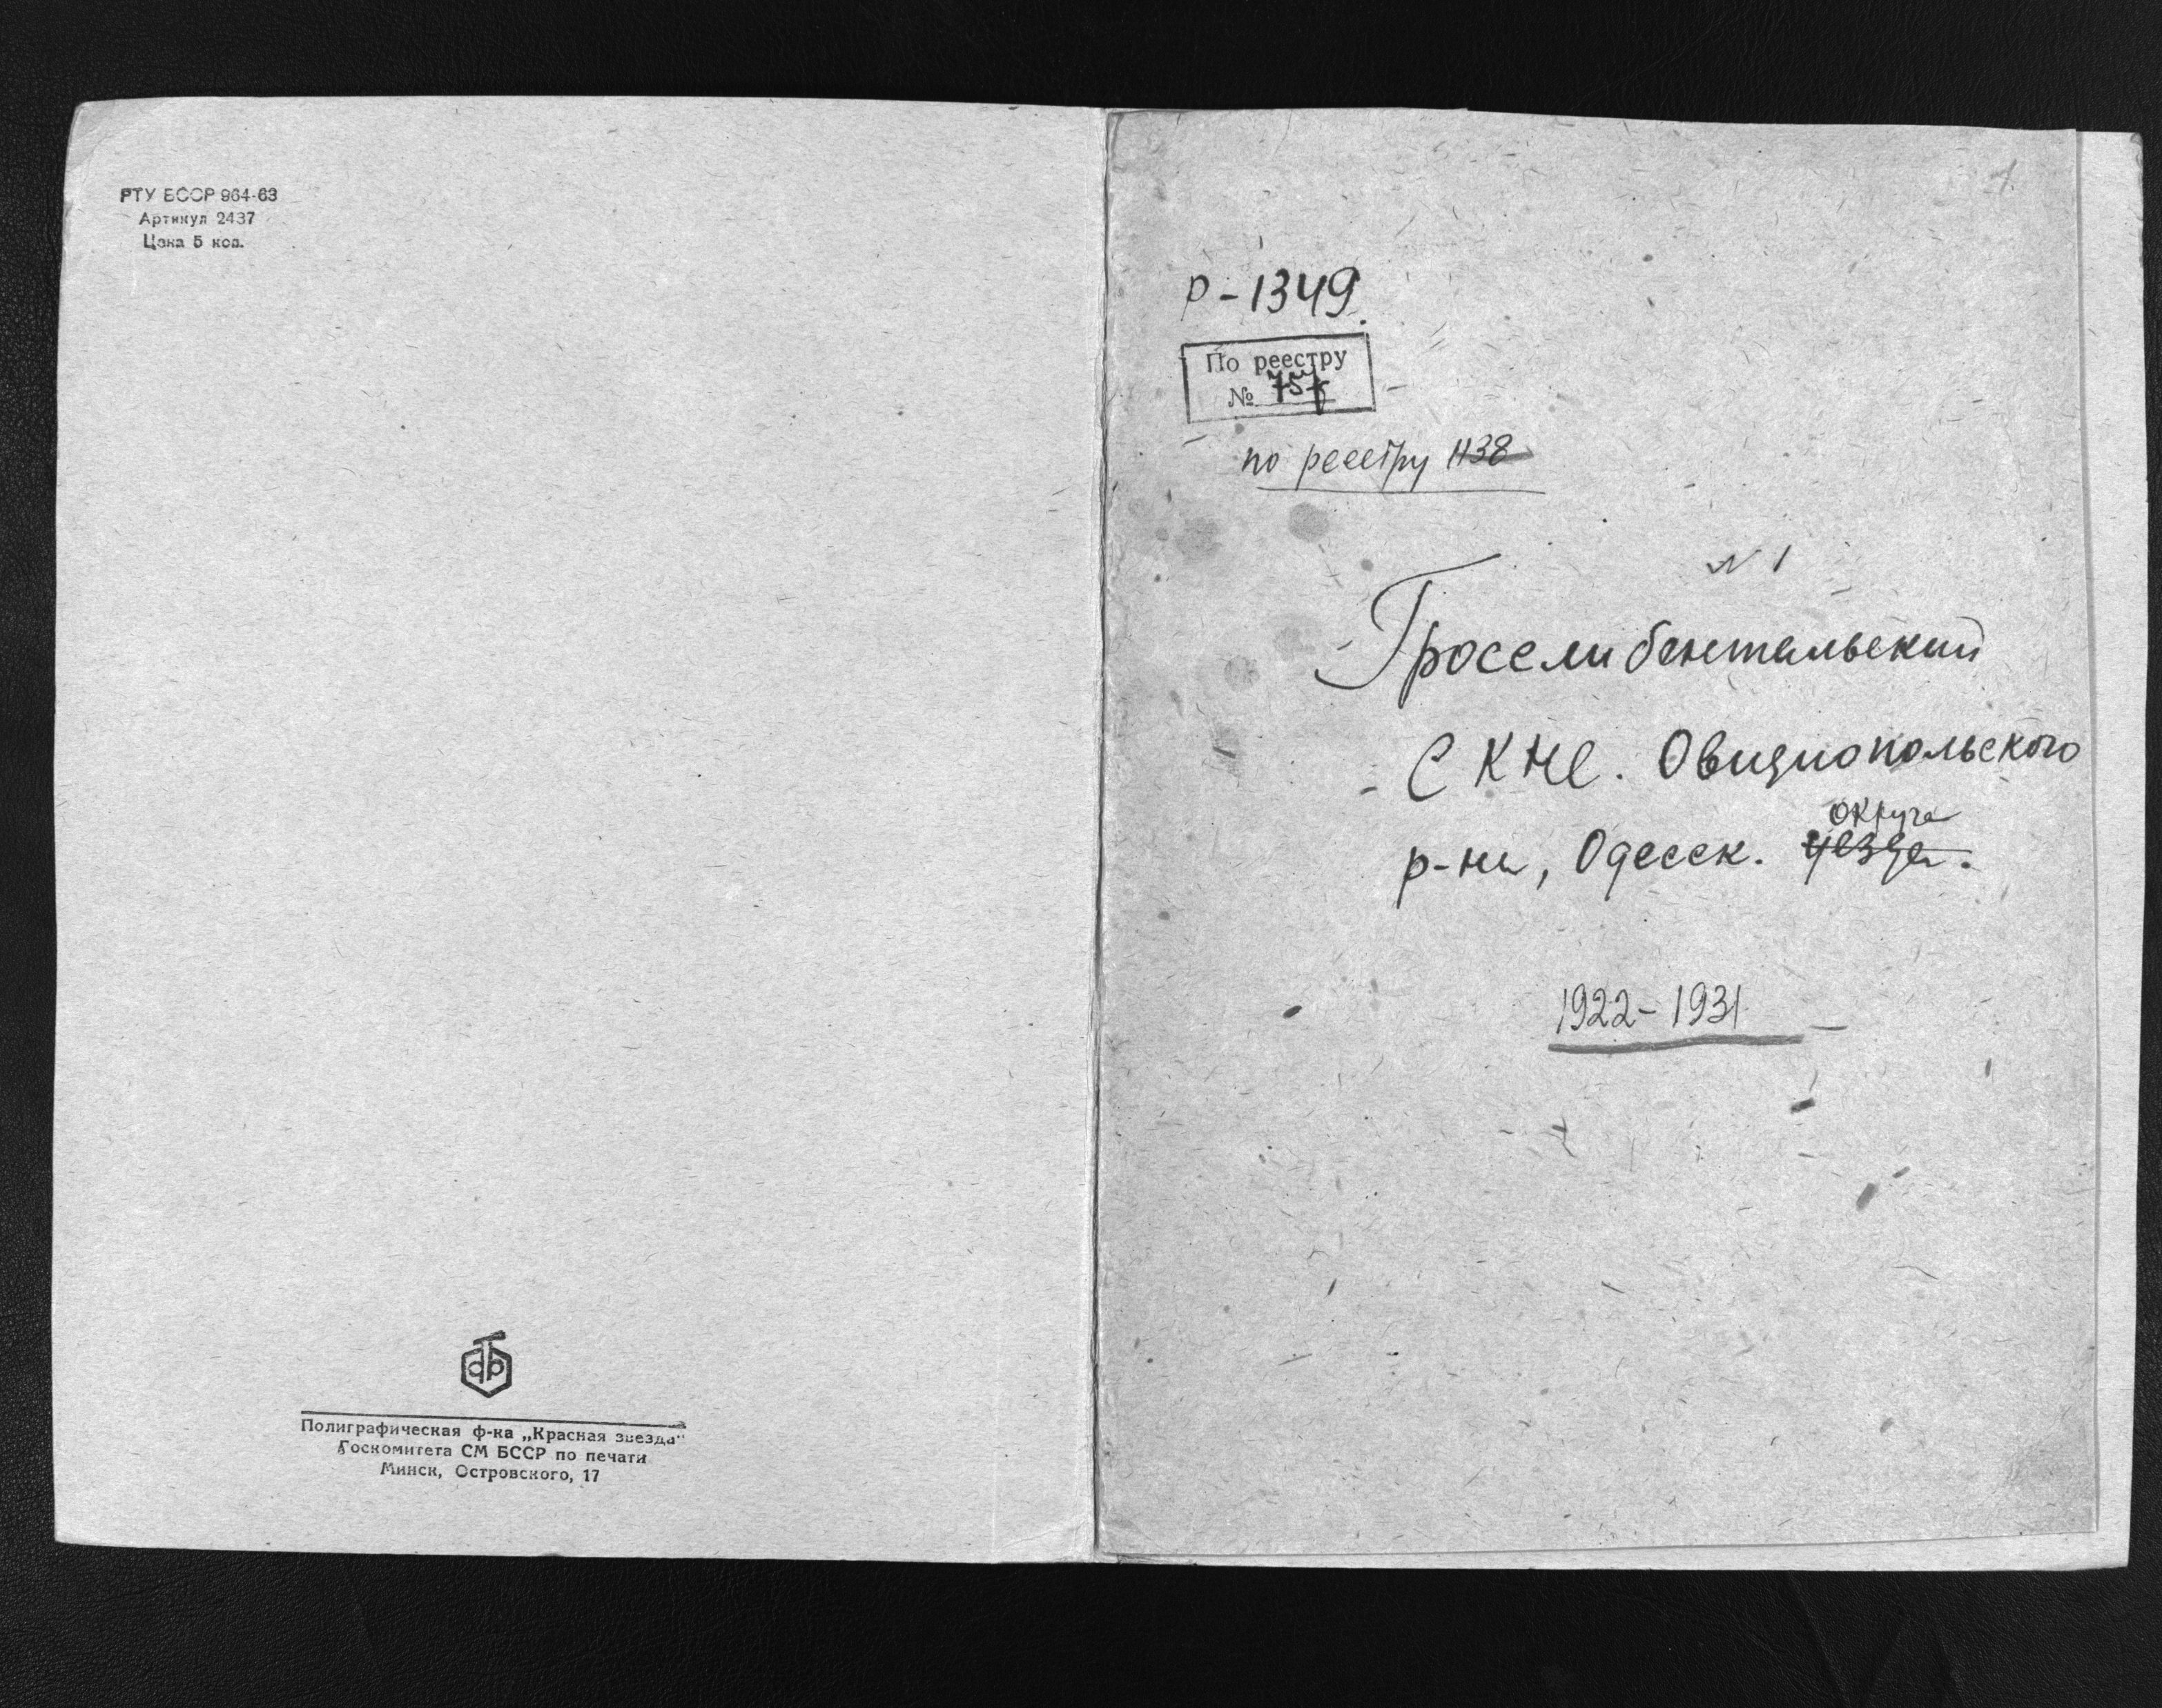 РТУ БССР 964-63
Артикул 2437
Цена 5 коп.
Полиграфическая ф-ка „Красная звезда“
Госкомитета СМ БССР по печати
Минск, Островского, 17
1
Р-1349.
По реестру
№
по реестру 1138
N 1
Гросслибентальский
СКНС. Овидиопольского
округа
р-на, Одесск. уезда.
1922-1931